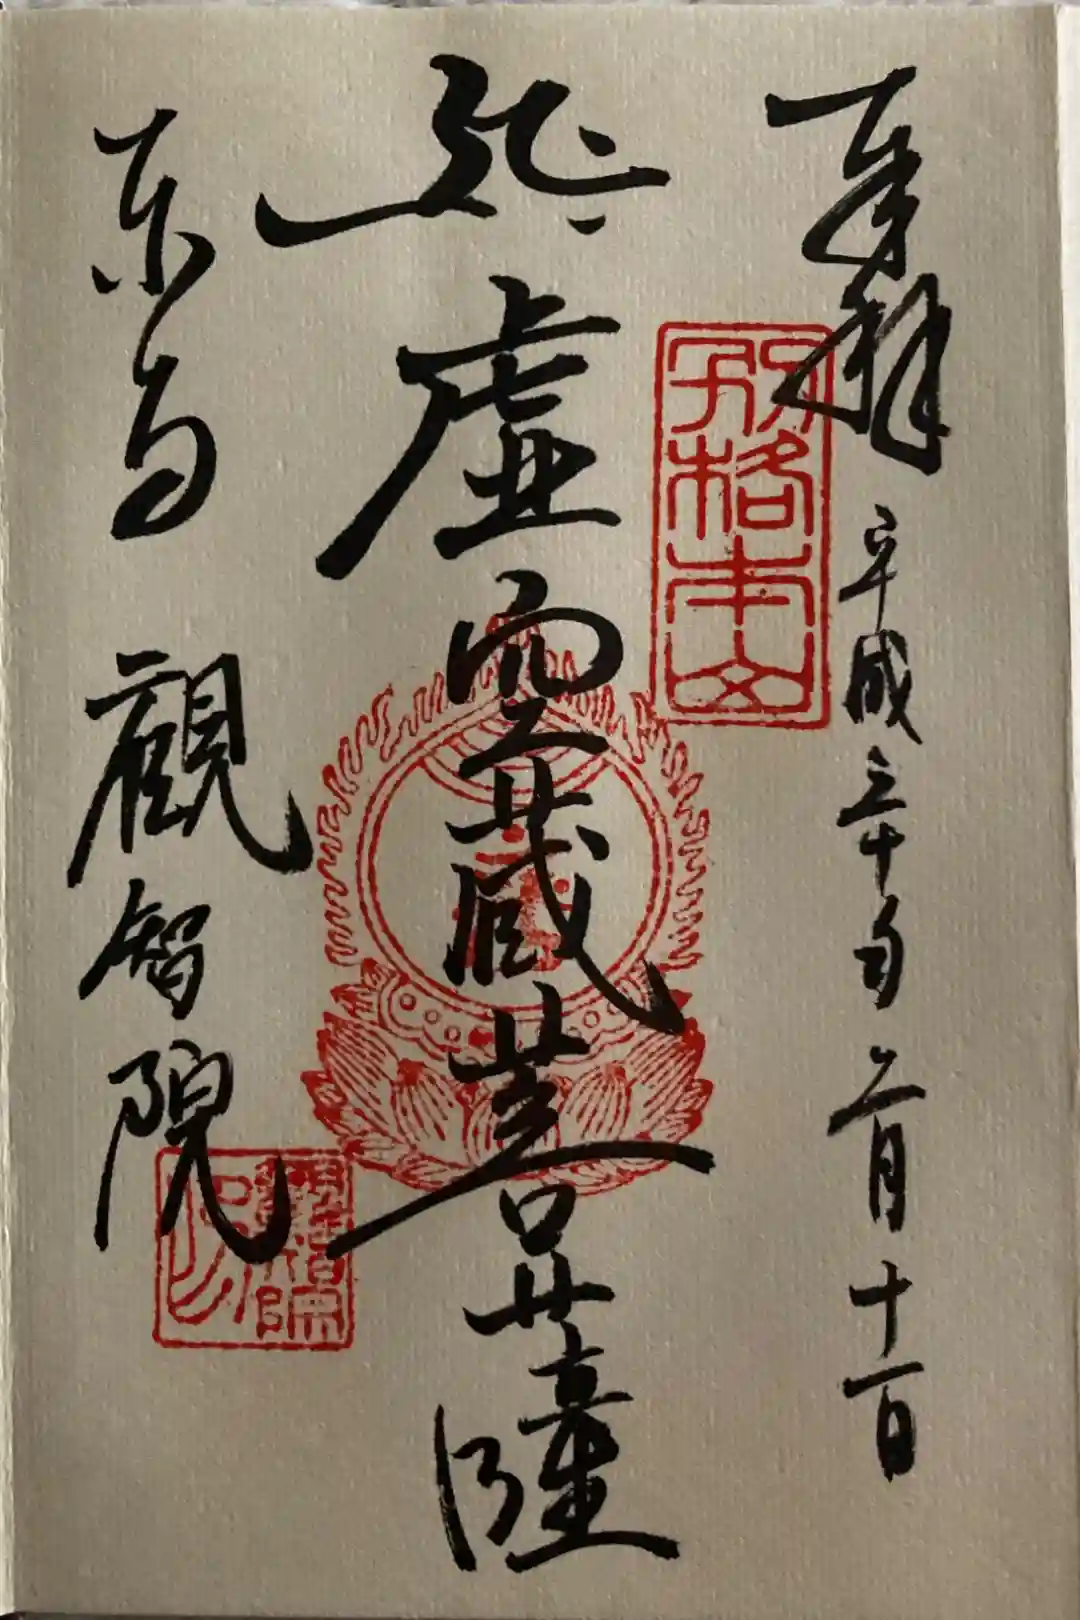 奉拝
平成三十年二月十一日
別格本山
虚空蔵菩薩
東寺
觀智院